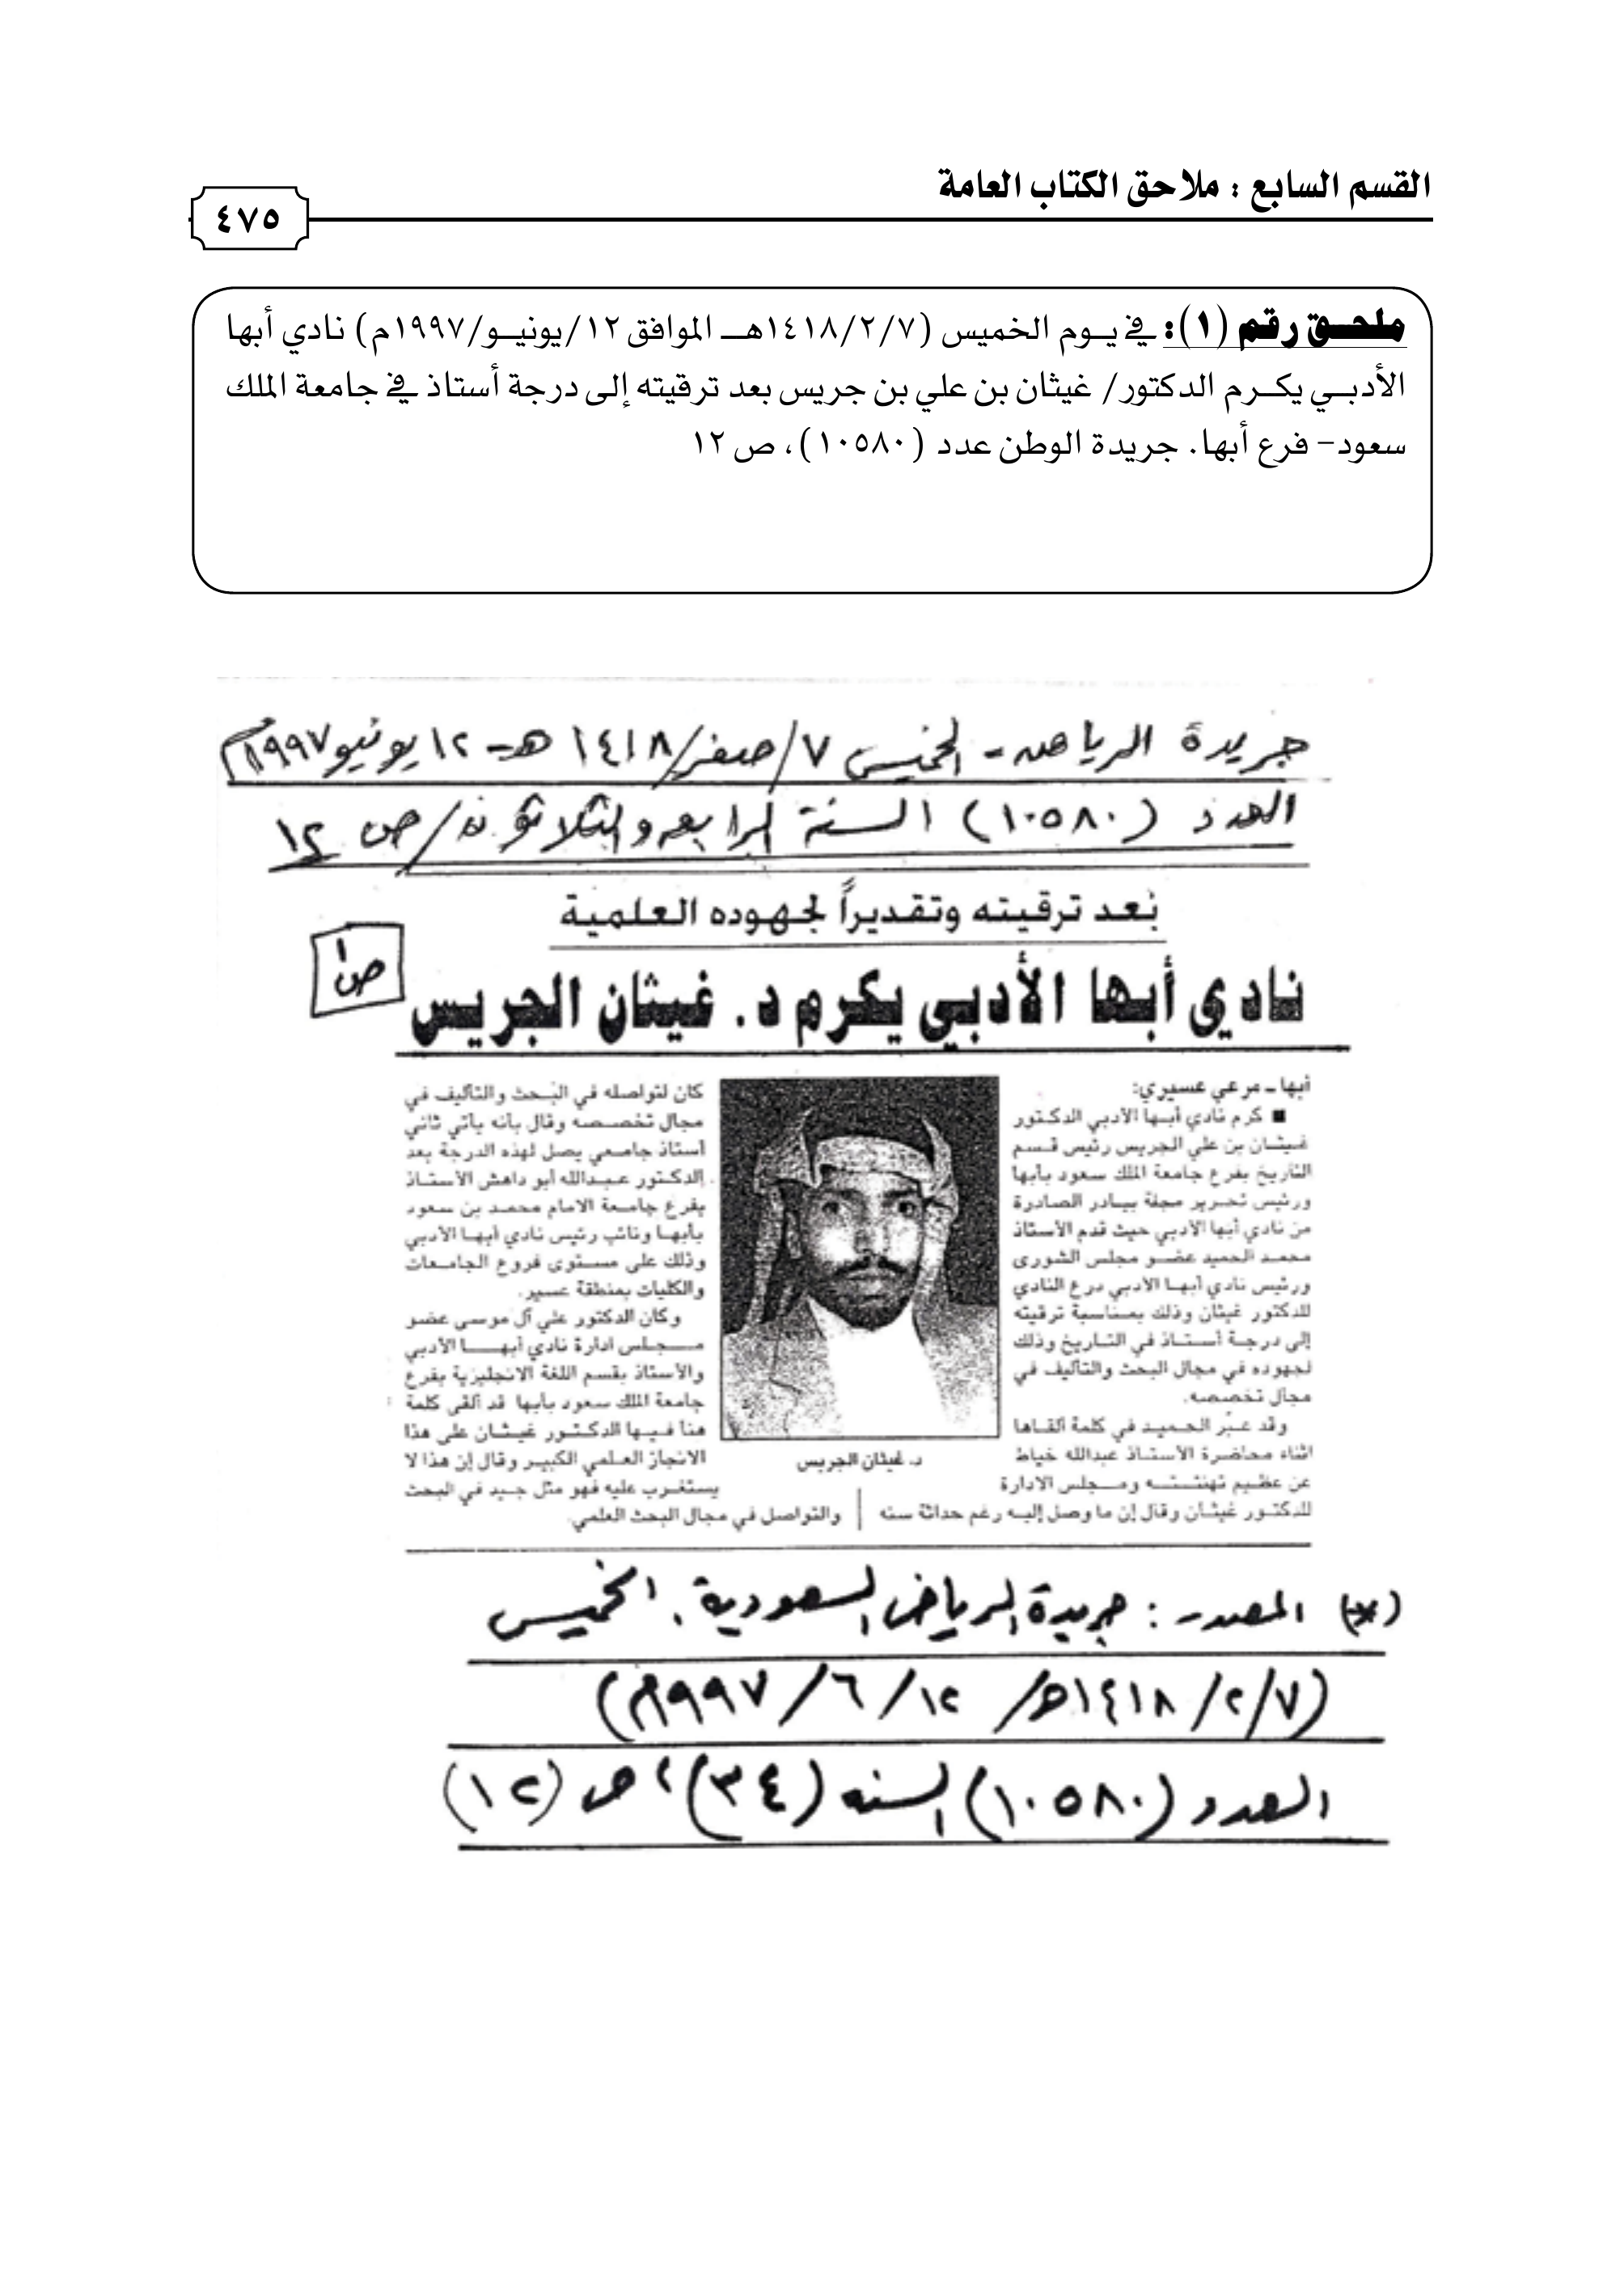 القسم السابع : ملاحق الكتاب العامة
٤٧٥
ملحق رقم (١): في يوم الخميس (١٤١٨/٢/٧هـ الموافق ١٢/يونيو/١٩٩٧م) نادي أبها
الأدبي يكرم الدكتور/ غيثان بن علي بن جريس بعد ترقيته إلى درجة أستاذ في جامعة الملك
سعود- فرع أبها. جريدة الوطن عدد (١٠٥٨٠)، ص ١٢
جريدة الرياض - الخميس ٧/صفر/١٤١٨هـ - ١٢ يونيو ١٩٩٧م
العدد (١٠٥٨٠) السنة الرابعة والثلاثون/ص ١٢
بعد ترقيته وتقديراً لجهوده العلمية
ص١
نادي أبها الأدبي يكرم د. غيثان الجريس
أبها ـ مرعي عسيري:
■ كرم نادي أبها الأدبي الدكتور
غيثان بن علي الجريس رئيس قسم
التاريخ بفرع جامعة الملك سعود بأبها
ورئيس تحرير مجلة بيادر الصادرة
من نادي أبها الأدبي حيث قدم الأستاذ
محمد الحميد عضو مجلس الشورى
ورئيس نادي أبها الأدبي درع النادي
للدكتور غيثان وذلك بمناسبة ترقيته
إلى درجة أستاذ في التاريخ وذلك
لجهوده في مجال البحث والتأليف في
مجال تخصصه.
وقد عبّر الحميد في كلمة ألقاها
اثناء محاضرة الاستاذ عبدالله خياط
عن عظيم تهنئته ومجلس الادارة
للدكتور غيثان وقال إن ما وصل إليه رغم حداثة سنه
كان لتواصله في البحث والتأليف في
مجال تخصصه وقال بأنه يأتي ثاني
أستاذ جامعي يصل لهذه الدرجة بعد
الدكتور عبدالله أبو داهش الأستاذ
بفرع جامعة الامام محمد بن سعود
بأبها ونائب رئيس نادي أبها الأدبي
وذلك على مستوى فروع الجامعات
والكليات بمنطقة عسير.
وكان الدكتور علي آل موسى عضو
مجلس ادارة نادي أبها الأدبي
والأستاذ بقسم اللغة الانجليزية بفرع
جامعة الملك سعود بأبها قد ألقى كلمة
هنأ فيها الدكتور غيثان على هذا
الانجاز العلمي الكبير وقال إن هذا لا
يستغرب عليه فهو مثل جيد في البحث
والتواصل في مجال البحث العلمي.
د. غيثان الجريس
(*) المصدر : جريدة الرياض السعودية. الخميس
(١٤١٨/٢/٧هـ/ ١٢/ ٦/ ١٩٩٧م)
العدد (١٠٥٨٠) السنه (٣٤)، ص (١٢)